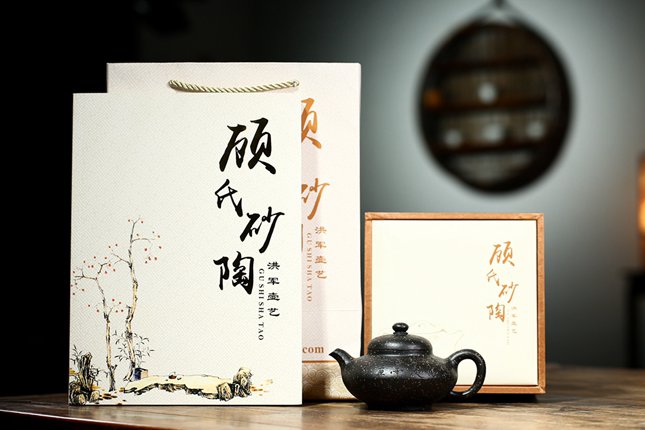 顾氏砂陶
洪军壶艺
GU SHI SHA TAO
顾
砂
洪军壶艺
GU SHI SHA TAO
.com
顾氏砂陶
洪军壶艺